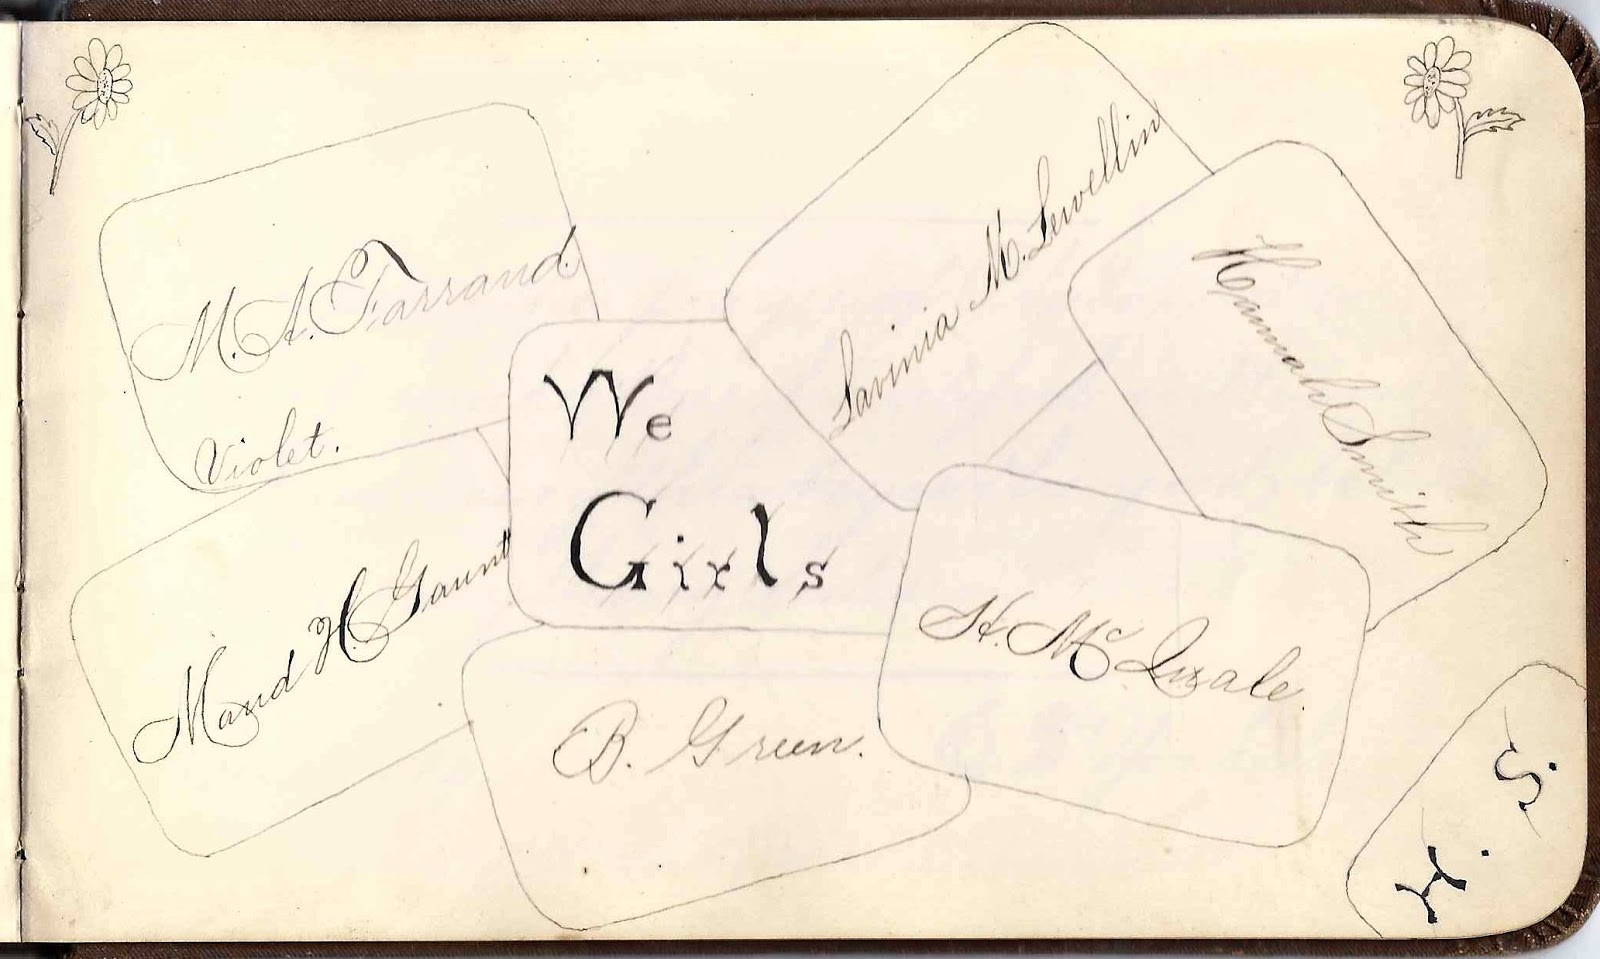 M. A. Farrand
Violet.
Lavinia M. Lewellin
Hannah Smith
We
Girls
Maud H. Gaunt
B. Green.
H. Mc
Y. S.